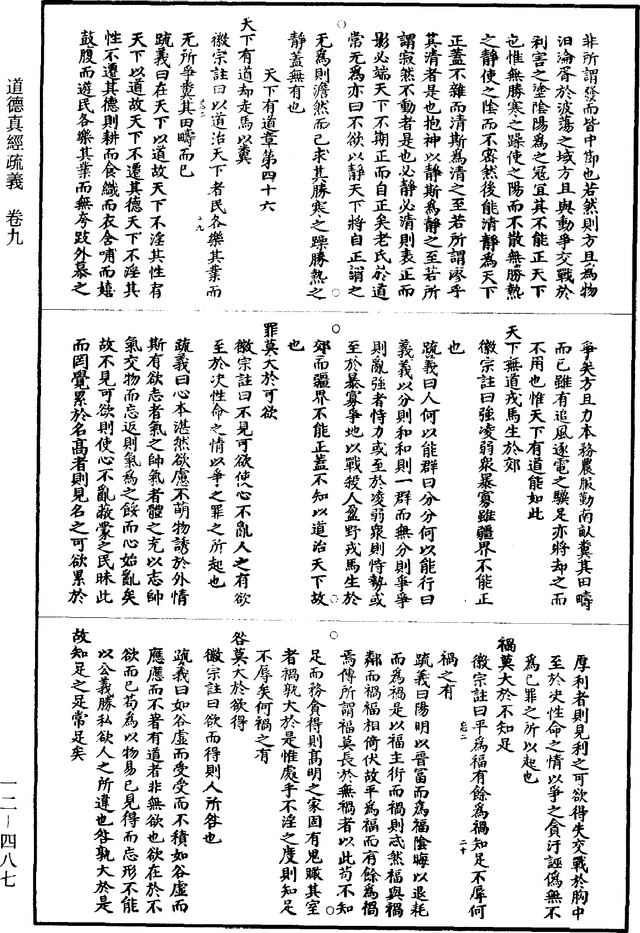 非所謂發而皆中節也若然則方且為物
汩淪胥於波蕩之域方且與動爭交戰於
利害之塗陰陽為之寇宜其不能正天下
也惟無勝寒之躁使之陽而不散無勝熱
之靜使之陰而不密然後能清靜為天下
正蓋不雜而清斯為清之至若所謂漻乎
其清者是也抱神以靜斯為靜之至若所
謂寂然不動者是也必靜必清則表正而
影必端天下不期正而自正矣老氏於道
常无為亦曰不欲以靜天下將自正謂之
无為則澹然而已求其勝寒之躁勝熱之
靜蓋無有也
天下有道章第四十六
天下有道却走馬以糞
徽宗註曰以道治天下者民各樂其業而
无所爭糞其田疇而已
疏義曰在天下以道故天下不淫其性宥
天下以道故天下不遷其德天下不淫其
性不遷其德則耕而食織而衣含哺而嬉
鼓腹而遊民各樂其業而無夸跂外慕之
爭矣方且力本務農服勤南畝糞其田疇
而已雖有追風逐電之驥足亦將却之而
不用也惟天下有道能如此
天下無道戎馬生於郊
徽宗註曰強凌弱衆暴寡雖疆界不能正
也
疏義曰人何以能群曰分分何以能行曰
義義以分則和和則一群而無分則爭爭
則亂強者恃力或至於凌弱衆則恃勢或
至於暴寡爭地以戰殺人盈野戎馬生於
郊而疆界不能正蓋不知以道治天下故
也
罪莫大於可欲
徽宗註曰不見可欲使心不亂人之有欲
至於決性命之情以爭之罪之所起也
疏義曰心本湛然欲慮不萌物誘於外情
斯有欲志者氣之帥氣者體之充以志帥
氣交物而忘返則氣為之餒而心始亂矣
故不見可欲則使心不亂蔽蒙之民昧此
而罔覺累於名高者則見名之可欲累於
厚利者則見利之可欲得失交戰於胸中
至於決性命之情以爭之貪汙誣偽無不
為已罪之所以起也
禍莫大於不知足
徽宗註曰平為福有餘為禍知足不辱何
禍之有
疏義曰陽明以晉富而為福陰晦以退耗
而為禍是以福主衍而禍則忒然福與禍
鄰而禍福相倚伏故平為福而有餘為禍
焉傳所謂福莫長於無禍者以此苟不知
足而務貪得則高明之家固有鬼瞰其室
者禍孰大於是惟處乎不淫之度則知足
不辱矣何禍之有
咎莫大於欲得
徽宗註曰欲而得則人所咎也
疏義曰如谷虛而受受而不積如谷虛而
應應而不著有道者非無欲也欲在於不
欲而已苟為以物易己見得而忘形不能
以公義勝私欲人之所違也咎孰大於是
故知足之足常足矣
道德真經疏義 卷九
一二－四八七